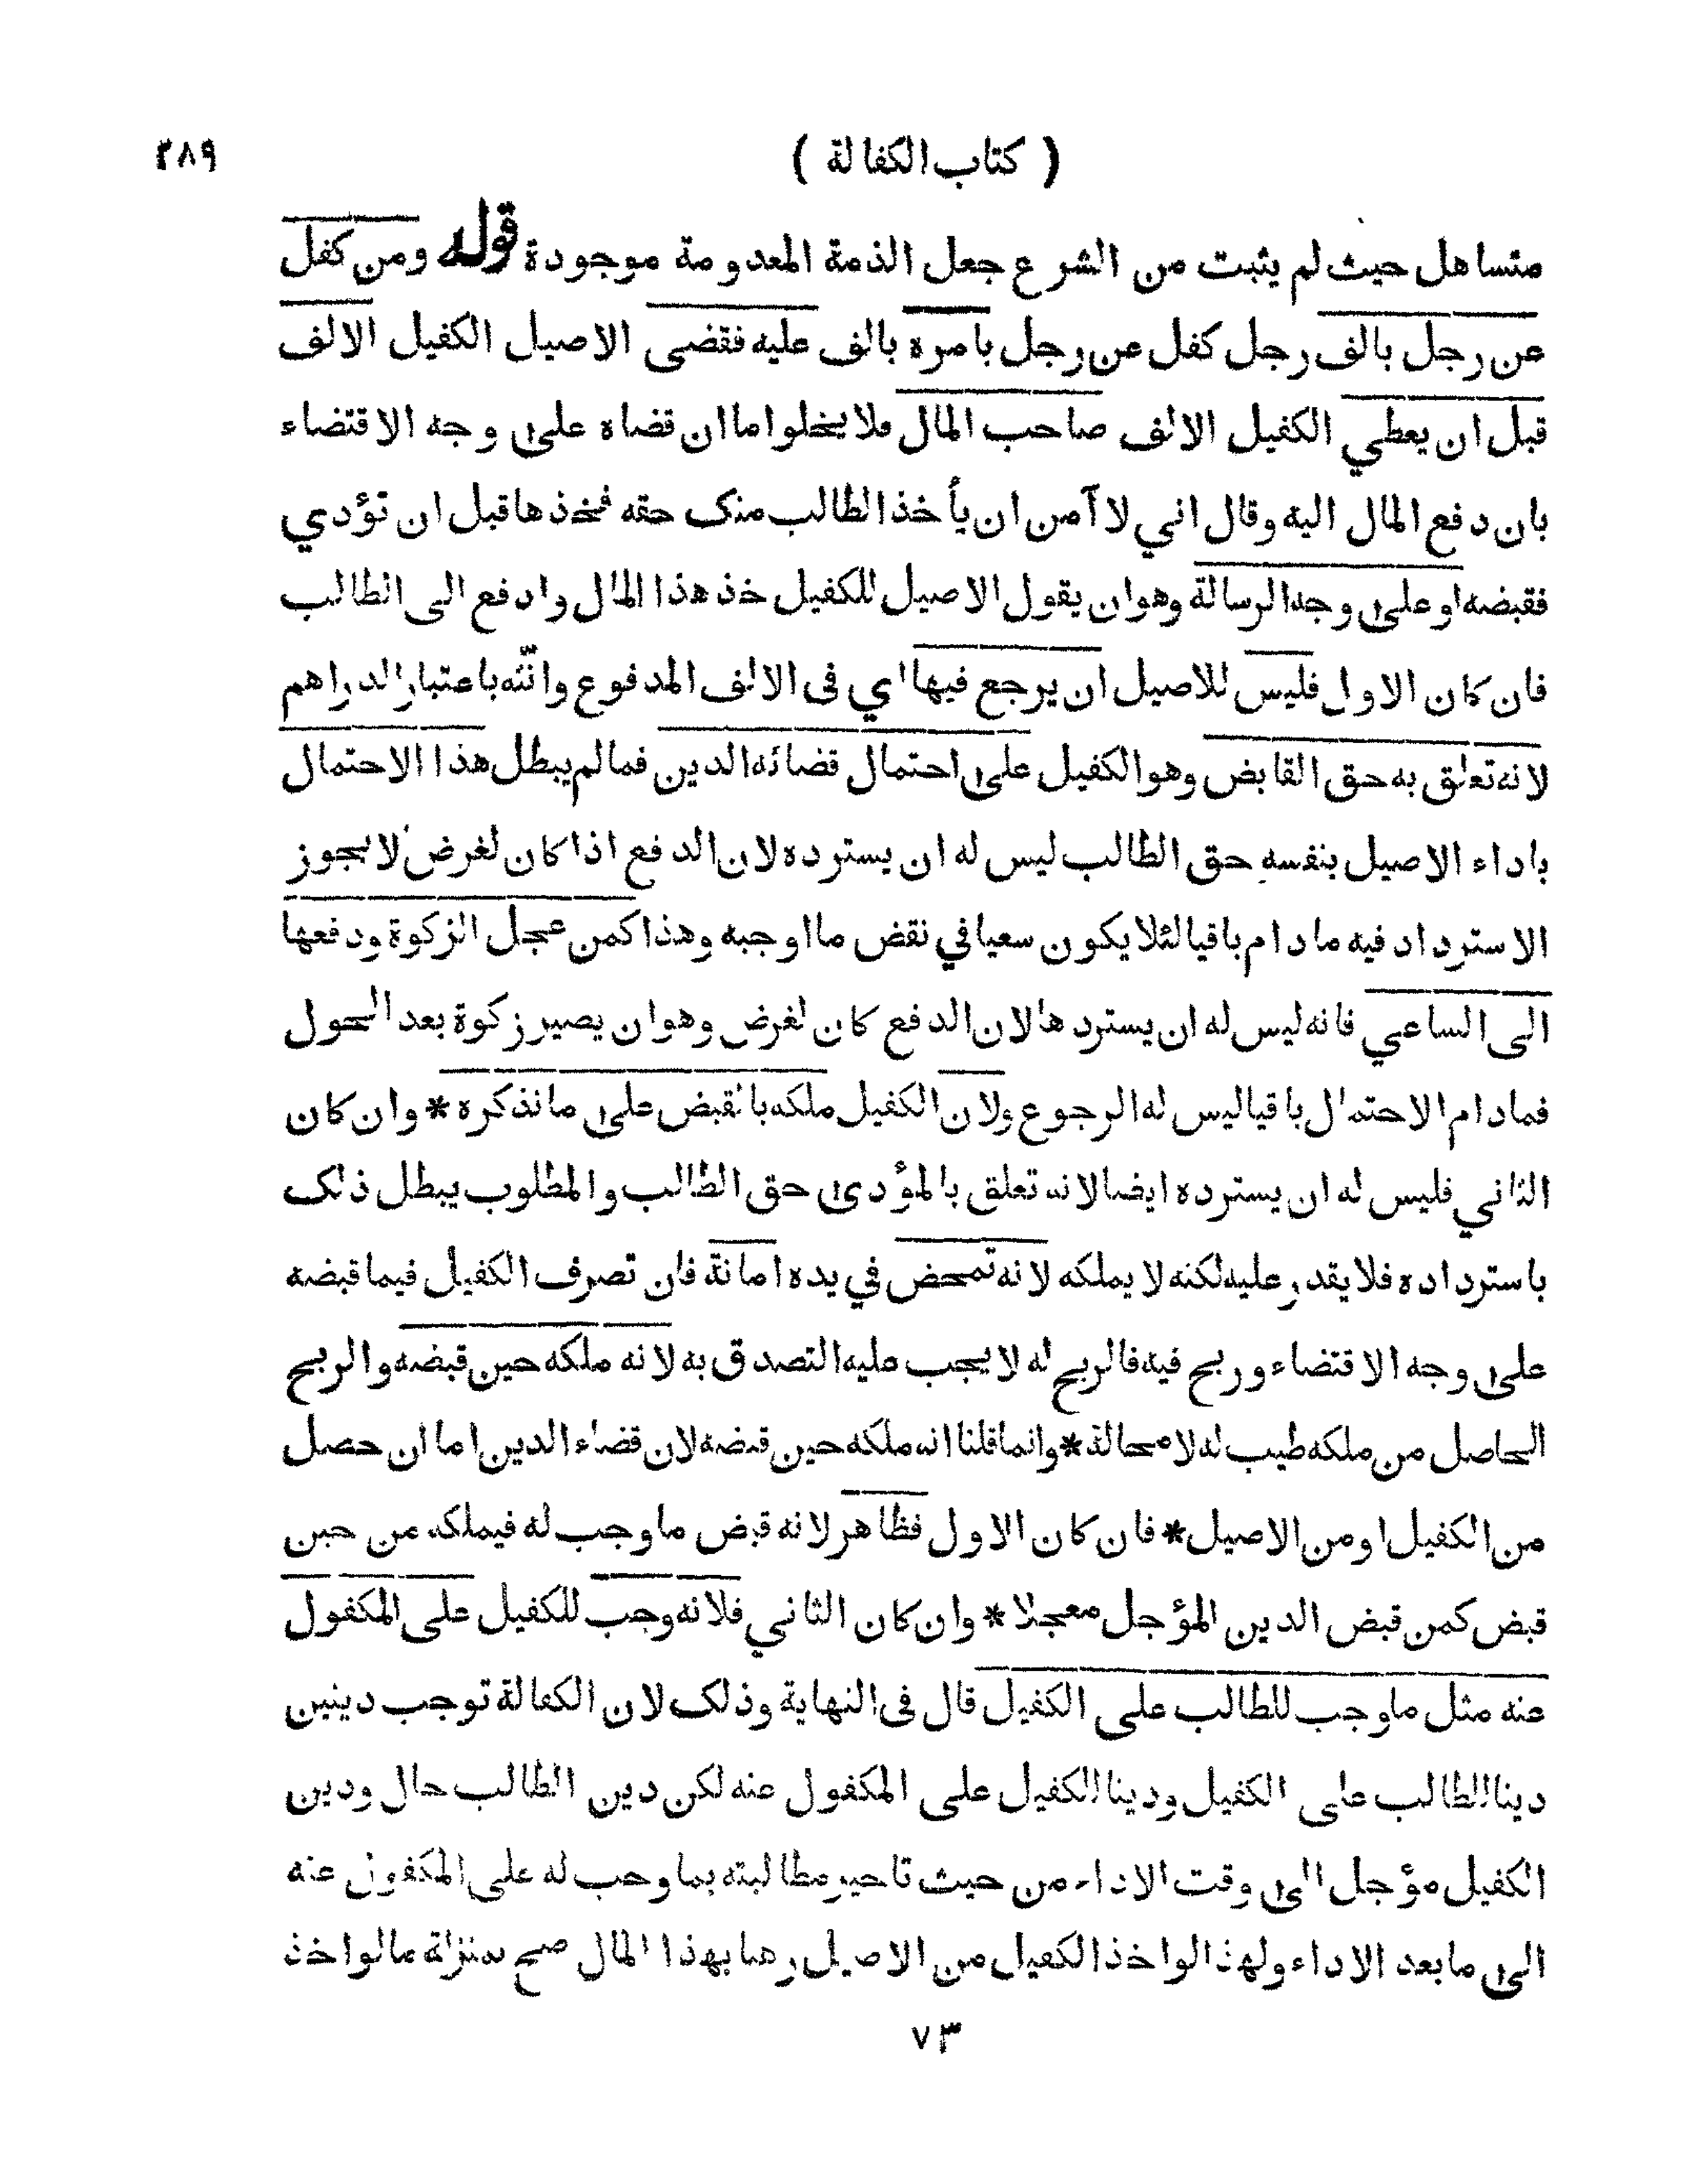 ( كتاب الكفالة )
٢٨٩
متساهل حيث لم يثبت من الشرع جعل الذمة المعدومة موجودة قوله ومن كفل
عن رجل بالف رجل كفل عن رجل بامره بالف عليه فقضى الاصيل الكفيل الالف
قبل ان يعطي الكفيل الالف صاحب المال فلا يخلوا ما ان قضاه على وجه الاقتضاء
بان دفع المال اليه وقال اني لا آمن ان يأخذ الطالب منك حقه فخذها قبل ان تؤدي
فقبضه او على وجه الرسالة وهوان يقول الاصيل للكفيل خذ هذا المال وادفع الى الطالب
فان كان الاول فليس للاصيل ان يرجع فيها اي فى الالف المدفوع وانّثه باعتبار الدراهم
لانه تعلق به حق القابض وهو الكفيل على احتمال قضائه الدين فما لم يبطل هذا الاحتمال
باداء الاصيل بنفسه حق الطالب ليس له ان يسترده لان الدفع اذا كان لغرض لا يجوز
الاسترداد فيه مادام باقيا لئلا يكون سعيا في نقض ما اوجبه وهذا كمن عجل الزكوة ودفعها
الى الساعي فانه ليس له ان يستردها لان الدفع كان لغرض وهوان يصير زكوة بعد الحول
فمادام الاحتمال باقيا ليس له الرجوع ولان الكفيل ملكه بالقبض على ما نذكره * وان كان
الثاني فليس له ان يسترده ايضا لانه تعلق بالمؤدى حق الطالب والمطلوب يبطل ذلك
باسترداده فلا يقدر عليه لكنه لا يملكه لانه تمحض في يده امانة فان تصرف الكفيل فيما قبضه
على وجه الاقتضاء وربح فيه فالربح له لا يجب عليه التصدق به لانه ملكه حين قبضه والربح
الحاصل من ملكه طيب له لا محالة * وانما قلنا انه ملكه حين قبضه لان قضاء الدين اما ان حصل
من الكفيل او من الاصيل * فان كان الاول فظاهر لانه قبض ما وجب له فيملكه من حين
قبض كمن قبض الدين المؤجل معجلا * وان كان الثاني فلانه وجب للكفيل على المكفول
عنه مثل ما وجب للطالب على الكفيل قال فى النهاية وذلك لان الكفالة توجب دينين
دينا للطالب على الكفيل ودينا للكفيل على المكفول عنه لكن دين الطالب حال ودين
الكفيل مؤجل الى وقت الاداء من حيث تاخير مطالبته بما وجب له على المكفول عنه
الى ما بعد الاداء ولهذا لو اخذ الكفيل من الاصيل رهنا بهذا المال صح بمنزلة ما لو اخذ
٧٣